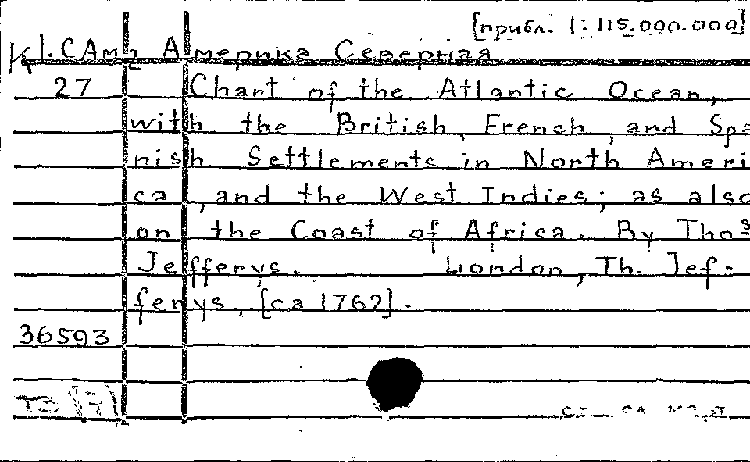 [прибл. 1:115.000.000]
К 1.САм2 Америка Северная
27 Chart of the Atlantic Ocean,
with the British, French, and Spa
nish Settlements in North Ameri
ca, and the West Indies; as also
on the Coast of Africa. By Thos
Jefferys. London, Th. Jef-
ferys, [ca 1762].
36593